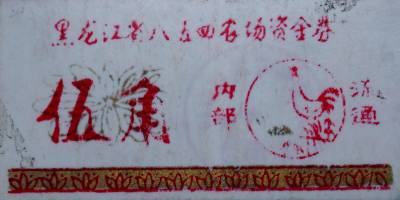 黑龙江省八五四农场资金券
伍角
内部
流通